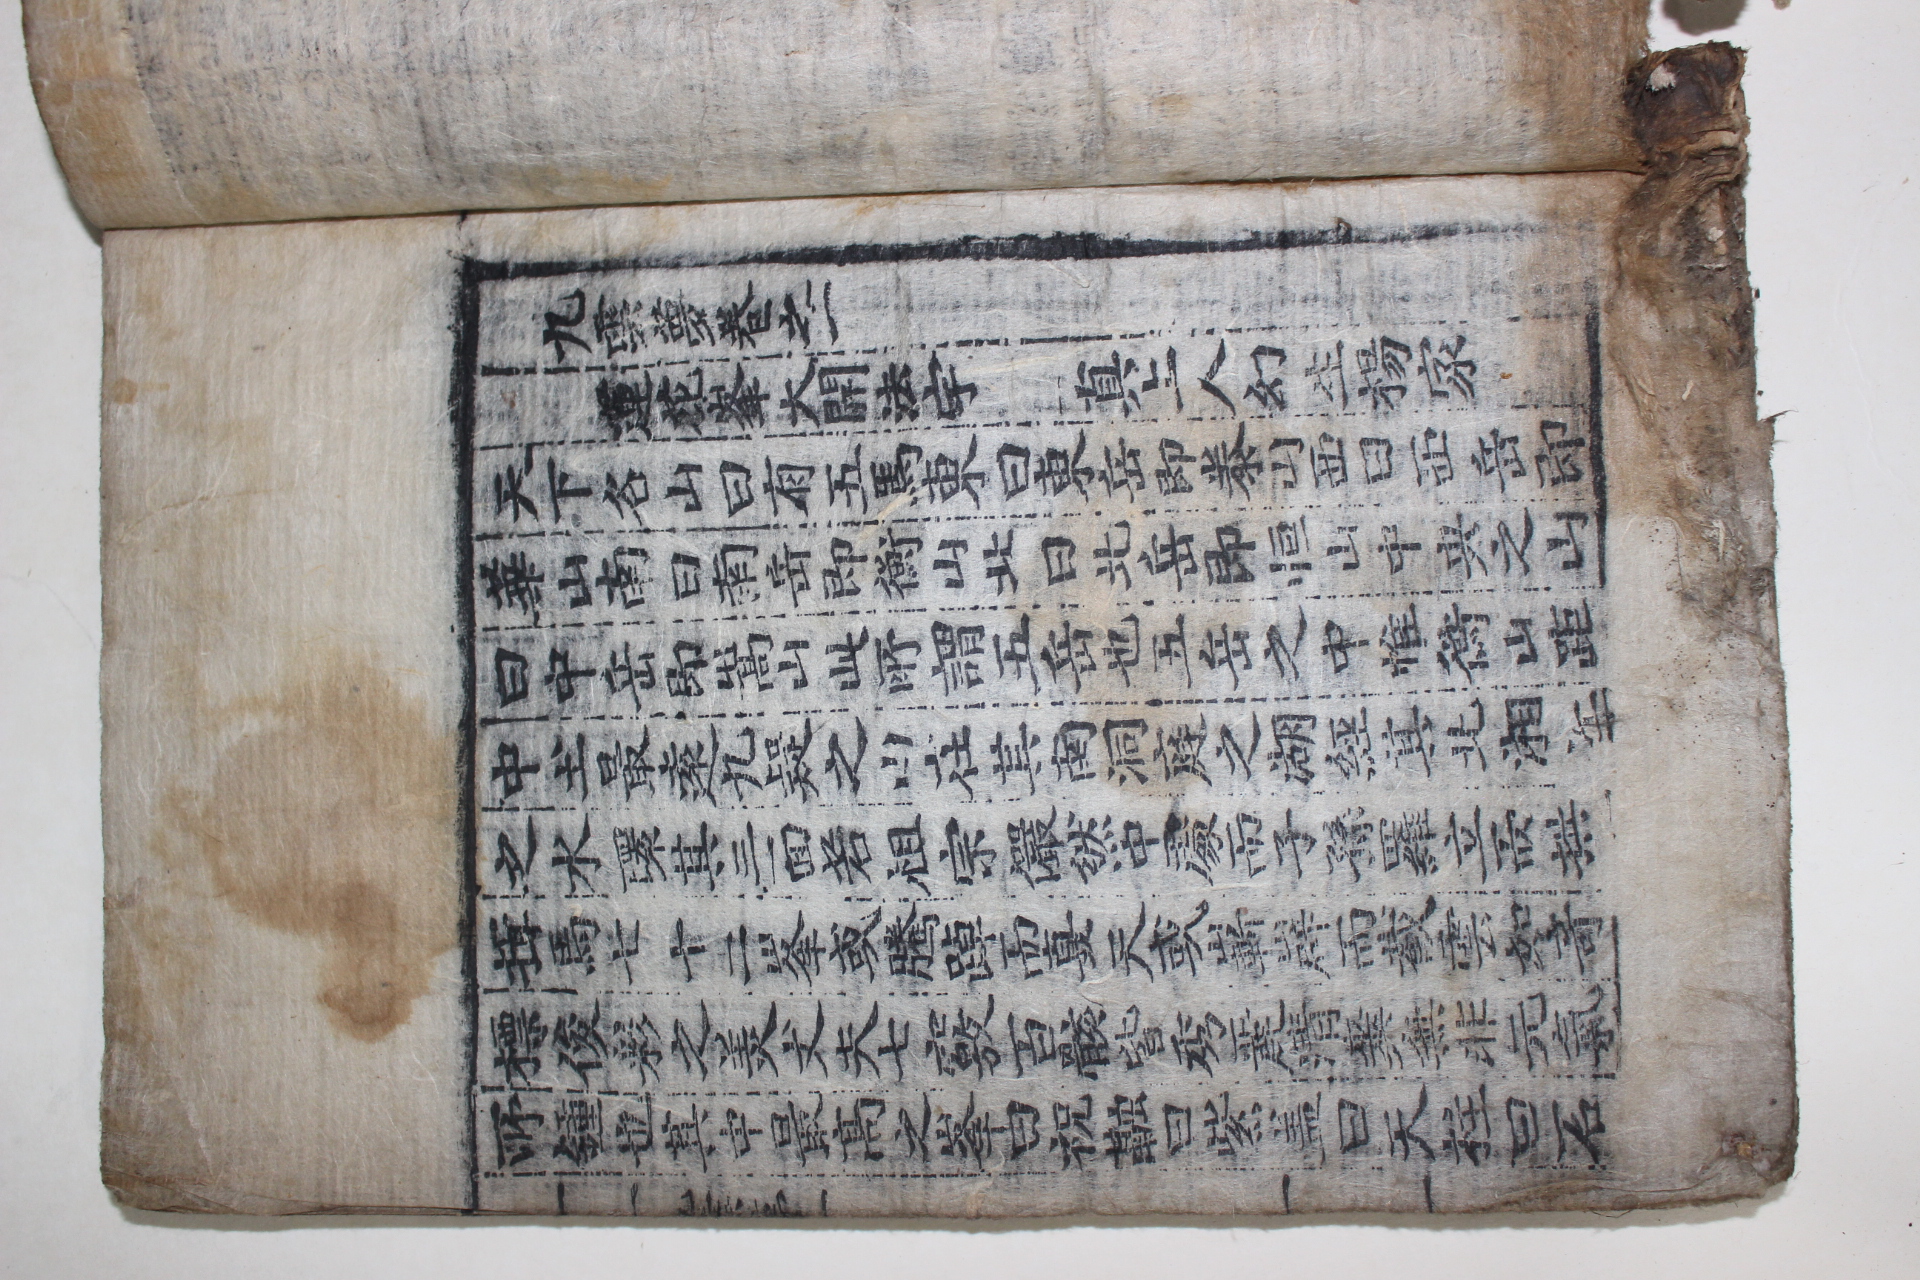 九雲夢卷之一
蓮花峯大開法宇　眞上人幻生楊家
天下名山曰有五焉東曰東岳即泰山西曰西岳即
華山南曰南岳即衡山北曰北岳即恒山中央之山
曰中岳即嵩山此所謂五岳也五岳之中惟衡山距
中土最遠九嶷之山在其南洞庭之湖經其北湘江
之水環其三面若祖宗儼然中處而子孫羅立而拱
揖焉七十二峯或騰踔而矗天或嶄嶭而截雲如奇
標俊彩之美丈夫七竅百骸皆秀麗清爽無非元氣
所鍾也其中最高之峯曰祝融曰紫盖曰天柱曰石